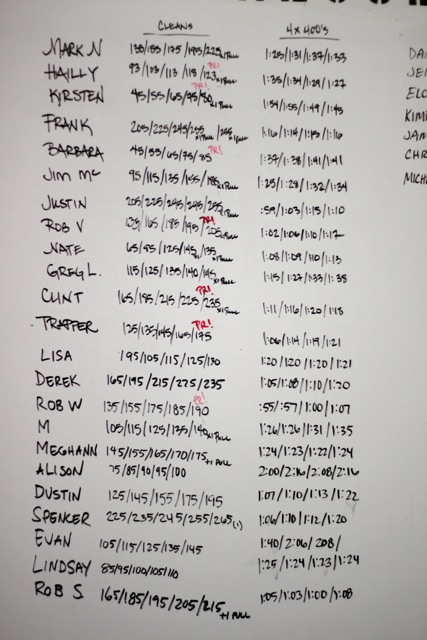 CLEANS 4x400'S
MARK N 135/155/175/195/225x1 PULL 1:25/1:31/1:37/1:33
HAILLY 93/103/113/118/123x1 PULL PR! 1:35/1:34/1:29/1:27
KIRSTEN 45/55/65/75/80x1 PULL PR! 1:54/1:55/1:49/1:45
FRANK 205/225/245/255 1:16/1:14/1:15/1:16
BARBARA 45/55/65/75/85 PR! 1:37/1:38/1:41/1:41
JIM MC 95/115/135/155/185x1 PULL 1:25/1:28/1:32/1:34
JUSTIN 205/225/245/245/255x1 PULL :59/1:03/1:15/1:10
ROB V 165/185/195/205x1 PULL PR! 1:02/1:06/1:10/1:17
NATE 65/95/125/145/135x1 PULL 1:08/1:09/1:10/1:13
GREG L. 115/125/135/140/145x1 PULL 1:15/1:27/1:33/1:38
CLINT 165/195/215/225/235x1 PULL PR! 1:11/1:16/1:20/1:18
TRAPPER 125/135/145/165/175 PR! 1:06/1:14/1:19/1:21
LISA 195/105/115/125/130 1:20/1:20/1:20/1:21
DEREK 165/195/215/225/235 1:05/1:08/1:10/1:20
ROB W 135/155/175/185/190 PR! :55/:57/1:00/1:07
M 105/115/125/135/140x1 PULL 1:26/1:26/1:31/1:35
MEGHANN 145/155/165/170/175+1 PULL 1:24/1:23/1:22/1:24
ALISON 75/85/90/95/100 2:00/2:16/2:08/2:16
DUSTIN 125/145/155/175/195 1:07/1:10/1:13/1:22
SPENCER 225/235/245/255/265(1) 1:06/1:10/1:12/1:20
EVAN 105/115/125/135/145 1:40/2:06/208/
LINDSAY 85/95/100/105/110 1:25/1:24/1:23/1:24
ROB S. 165/185/195/205/215+1 PULL 1:05/1:03/1:00/1:08